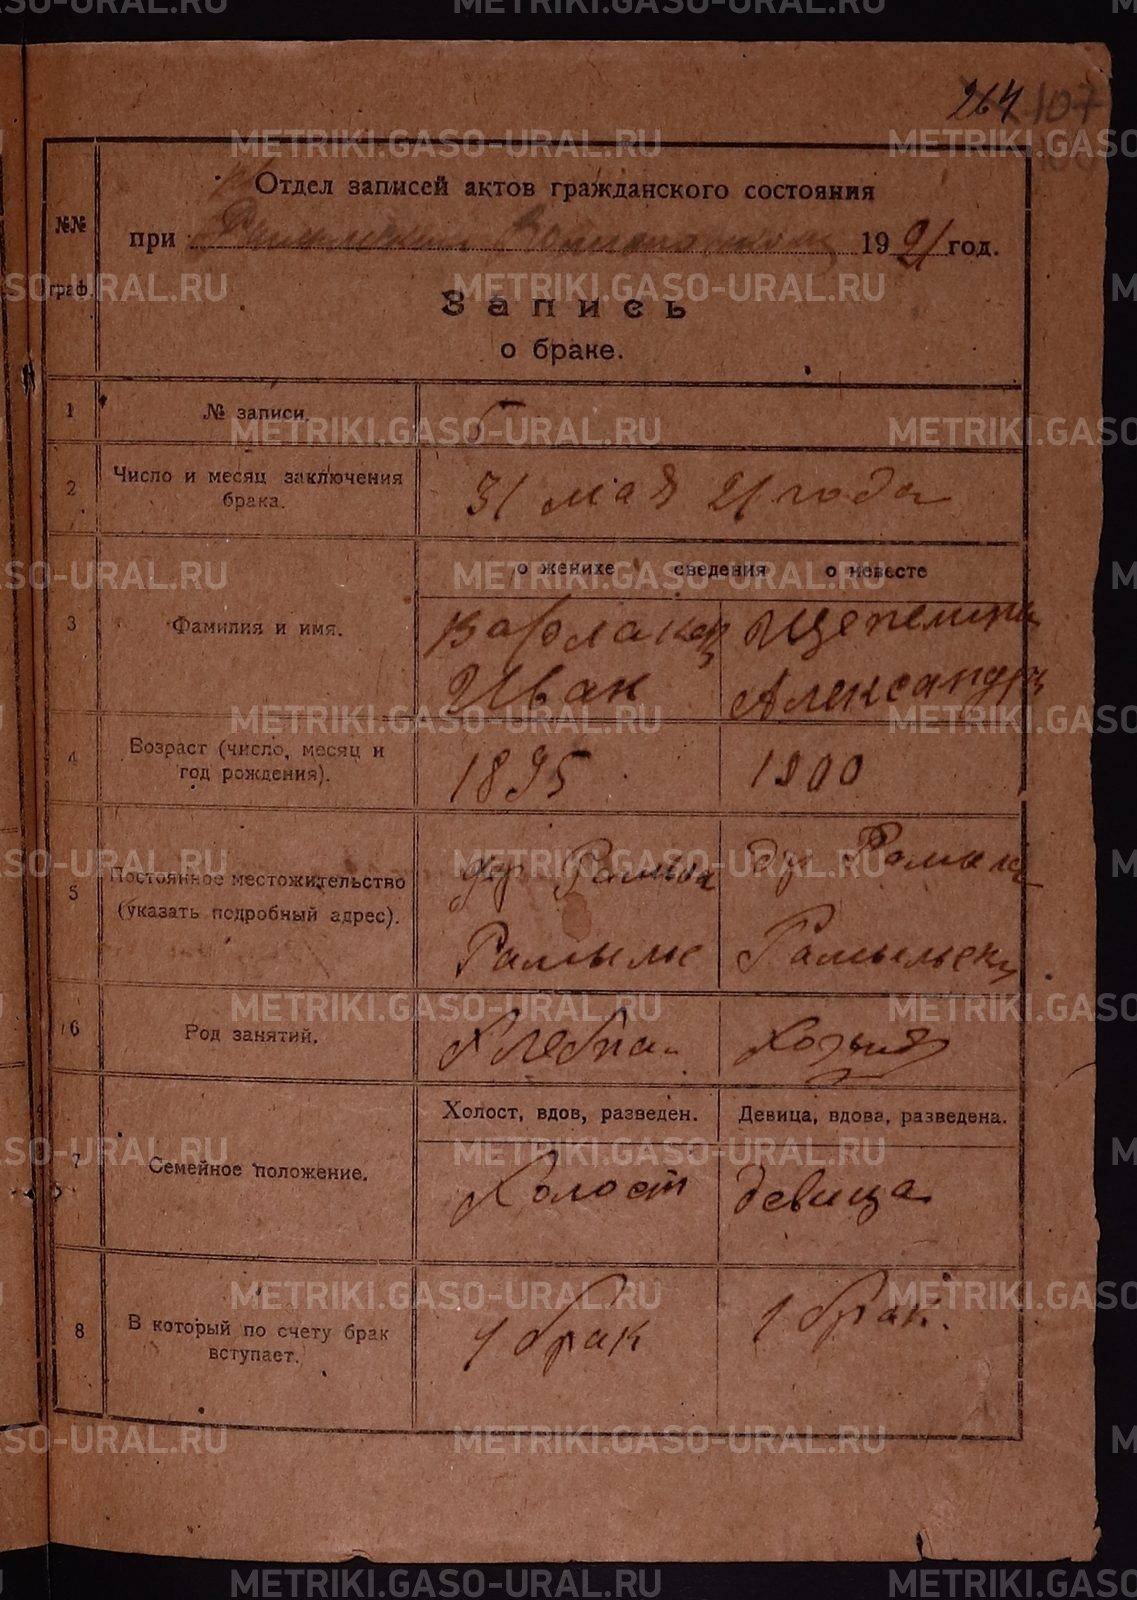 264 107
№№
граф.
Отдел записей актов гражданского состояния
при 1921 год.
Запись
о браке.
1 № записи.
2 Число и месяц заключения
брака.
31 мая 21 года
о женихе сведения о невесте
3 Фамилия и имя.
Иван Александра
4 Возраст (число, месяц и
год рождения).
1895 1900
5 Постоянное местожительство
(указать подробный адрес).
6 Род занятий.
Холост, вдов, разведен. Девица, вдова, разведена.
7 Семейное положение.
Холост девица
8 В который по счету брак
вступает.
1 брак 1 брак.
METRIKI.GASO-URAL.RU